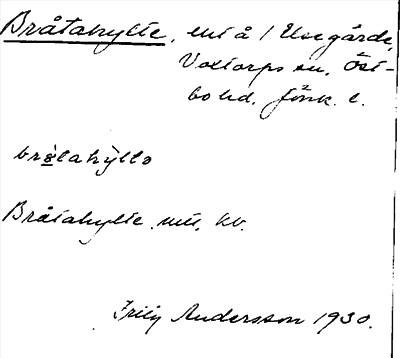 Bråtahylte, mt å 1 Usegårde,
Voxtorps sn, Öst-
bo hd. Jönk. l.
brǫtahỳltə
Bråtahylte mt. kv.
Frity Andersson 1930.